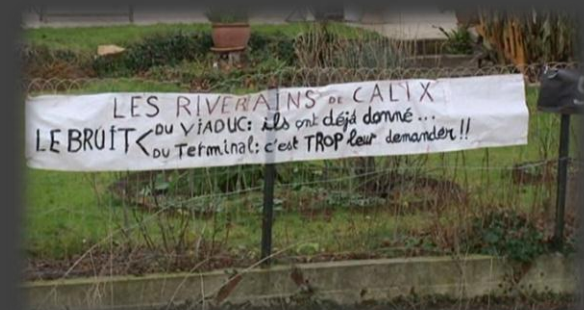 LES RIVERAINS DE CALIX
LE BRUIT < DU VIADUC: ils ont déjà donné...
DU Terminal: c'est TROP leur demander!!